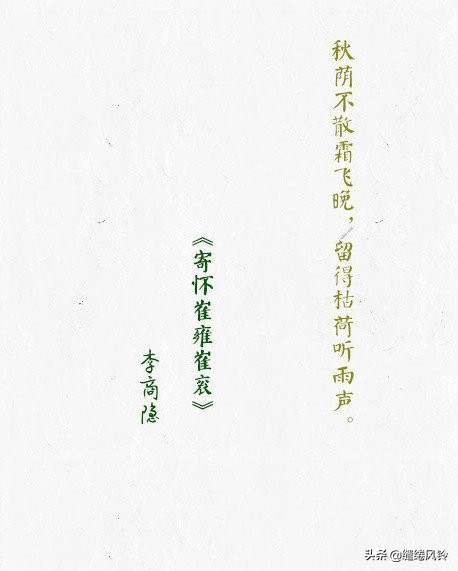 秋荫不散霜飞晚，留得枯荷听雨声。
《寄怀崔雍崔衮》
李商隐
头条 @缱绻风铃